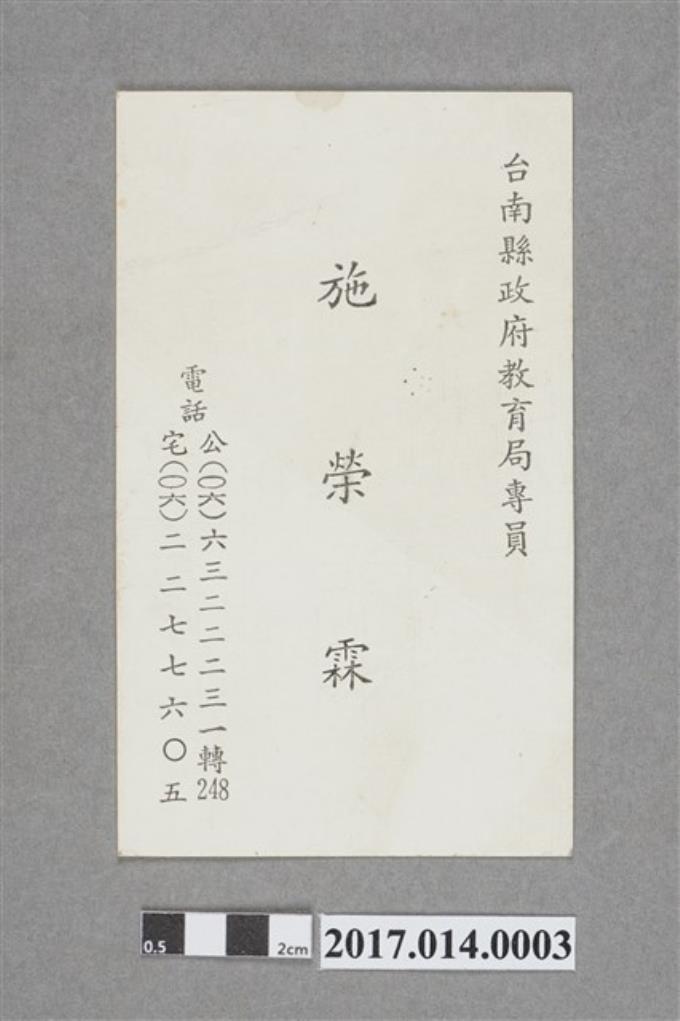 台南縣政府教育局專員
施榮霖
電話
公(〇六)六三二二二三一轉248
宅(〇六)二二七七六〇五
0.5 2cm
2017.014.0003